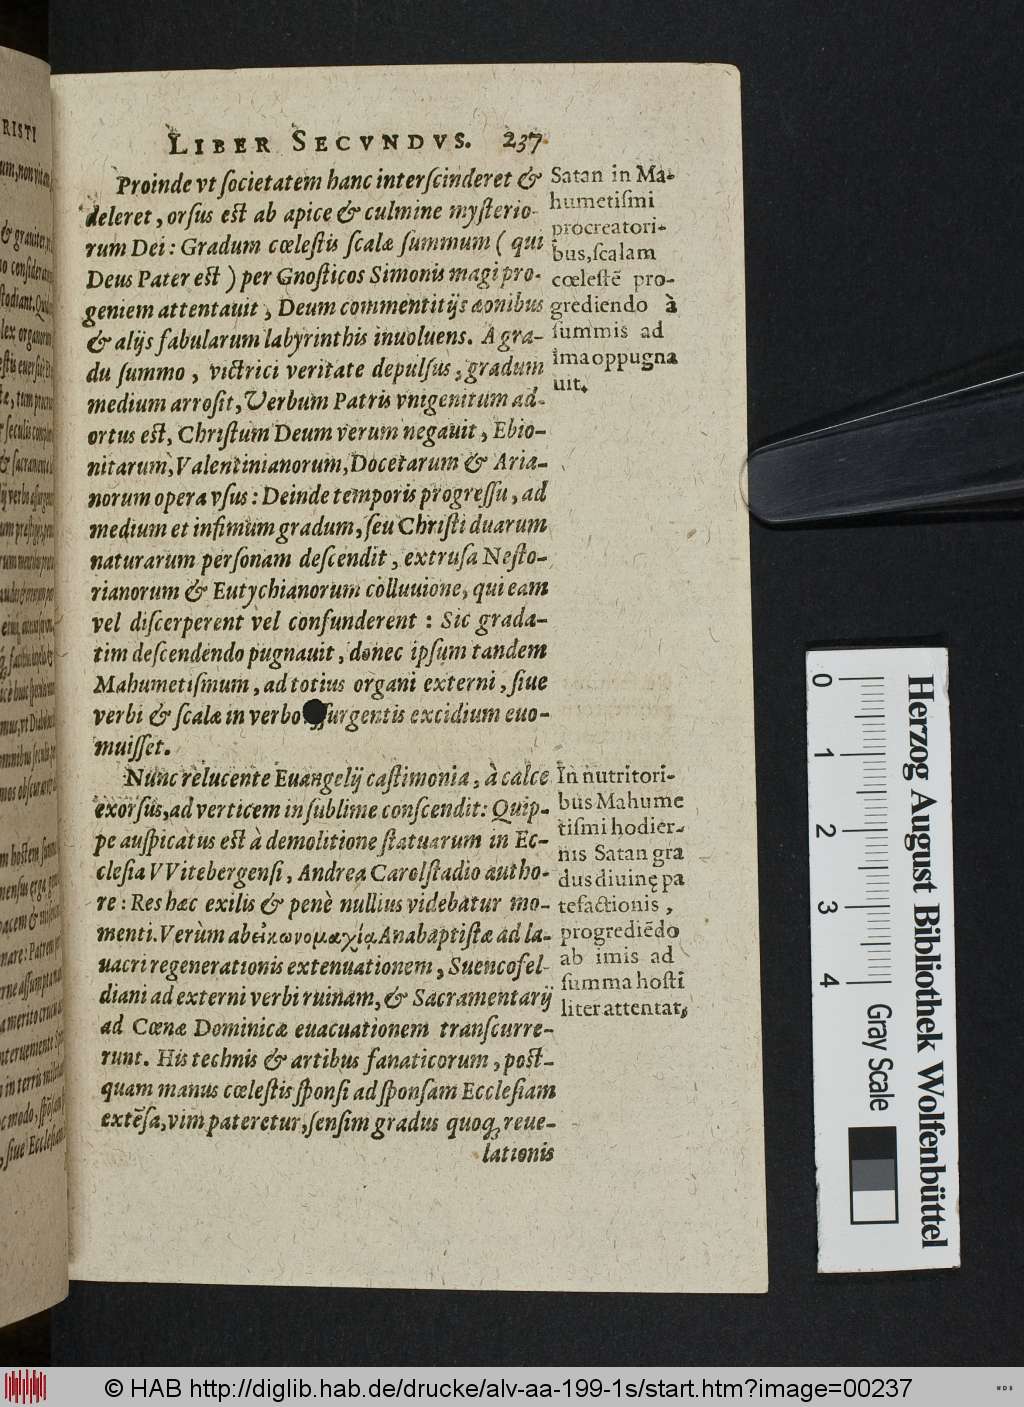 LIBER SECVNDVS. 237
Proinde vt ſocietatem hanc interſcinderet &
deleret, orſus eſt ab apice & culmine myſterio-
rum Dei: Gradum cœleſtis ſcalæ ſummum (qui
Deus Pater eſt) per Gnoſticos Simonis magi pro-
geniem attentauit, Deum commentitijs æonibus
& alijs fabularum labyrinthis inuoluens. A gra-
du ſummo, victrici veritate depulſus, gradum
medium arroſit, Verbum Patris vnigenitum ad-
ortus eſt, Chriſtum Deum verum negauit, Ebio-
nitarum, Valentinianorum, Docetarum & Aria-
norum opera vſus: Deinde temporis progreſſu, ad
medium et infimum gradum, ſeu Chriſti duarum
naturarum perſonam deſcendit, extruſa Neſto-
rianorum & Eutychianorum colluuione, qui eam
vel diſcerperent vel confunderent: Sic grada-
tim deſcendendo pugnauit, donec ipſum tandem
Mahumetiſmum, ad totius organi externi, ſiue
verbi & ſcalæ in verbo ſurgentis excidium euo-
muiſſet.
Satan in Ma-
humetiſmi
procreatori-
bus, ſcalam
cœleſtē pro-
grediendo à
ſummis ad
ima oppugna
uit.
Nunc relucente Euangelij caſtimonia, à calce
exorſus, ad verticem in ſublime conſcendit: Quip-
pe auſpicatus eſt à demolitione ſtatuarum in Ec-
cleſia VVitebergenſi, Andrea Carolſtadio autho-
re: Res hæc exilis & penè nullius videbatur mo-
menti. Verùm ab εἰκωνομαχίᾳ Anabaptiſtæ ad la-
uacri regenerationis extenuationem, Suencofel-
diani ad externi verbi ruinam, & Sacramentarij
ad Cœnæ Dominicæ euacuationem tranſcurre-
runt. His technis & artibus fanaticorum, poſt-
quam manus cœleſtis ſponſi ad ſponſam Eccleſiam
extēſa, vim pateretur, ſenſim gradus quoq; reue-
lationis
In nutritori-
bus Mahume
tiſmi hodier-
nis Satan gra
dus diuinę pa
tefactionis,
progrediēdo
ab imis ad
ſumma hoſti
liter attentat,
RISTI
Herzog August Bibliothek Wolfenbüttel
0 1 2 3 4
Gray Scale
© HAB http://diglib.hab.de/drucke/alv-aa-199-1s/start.htm?image=00237